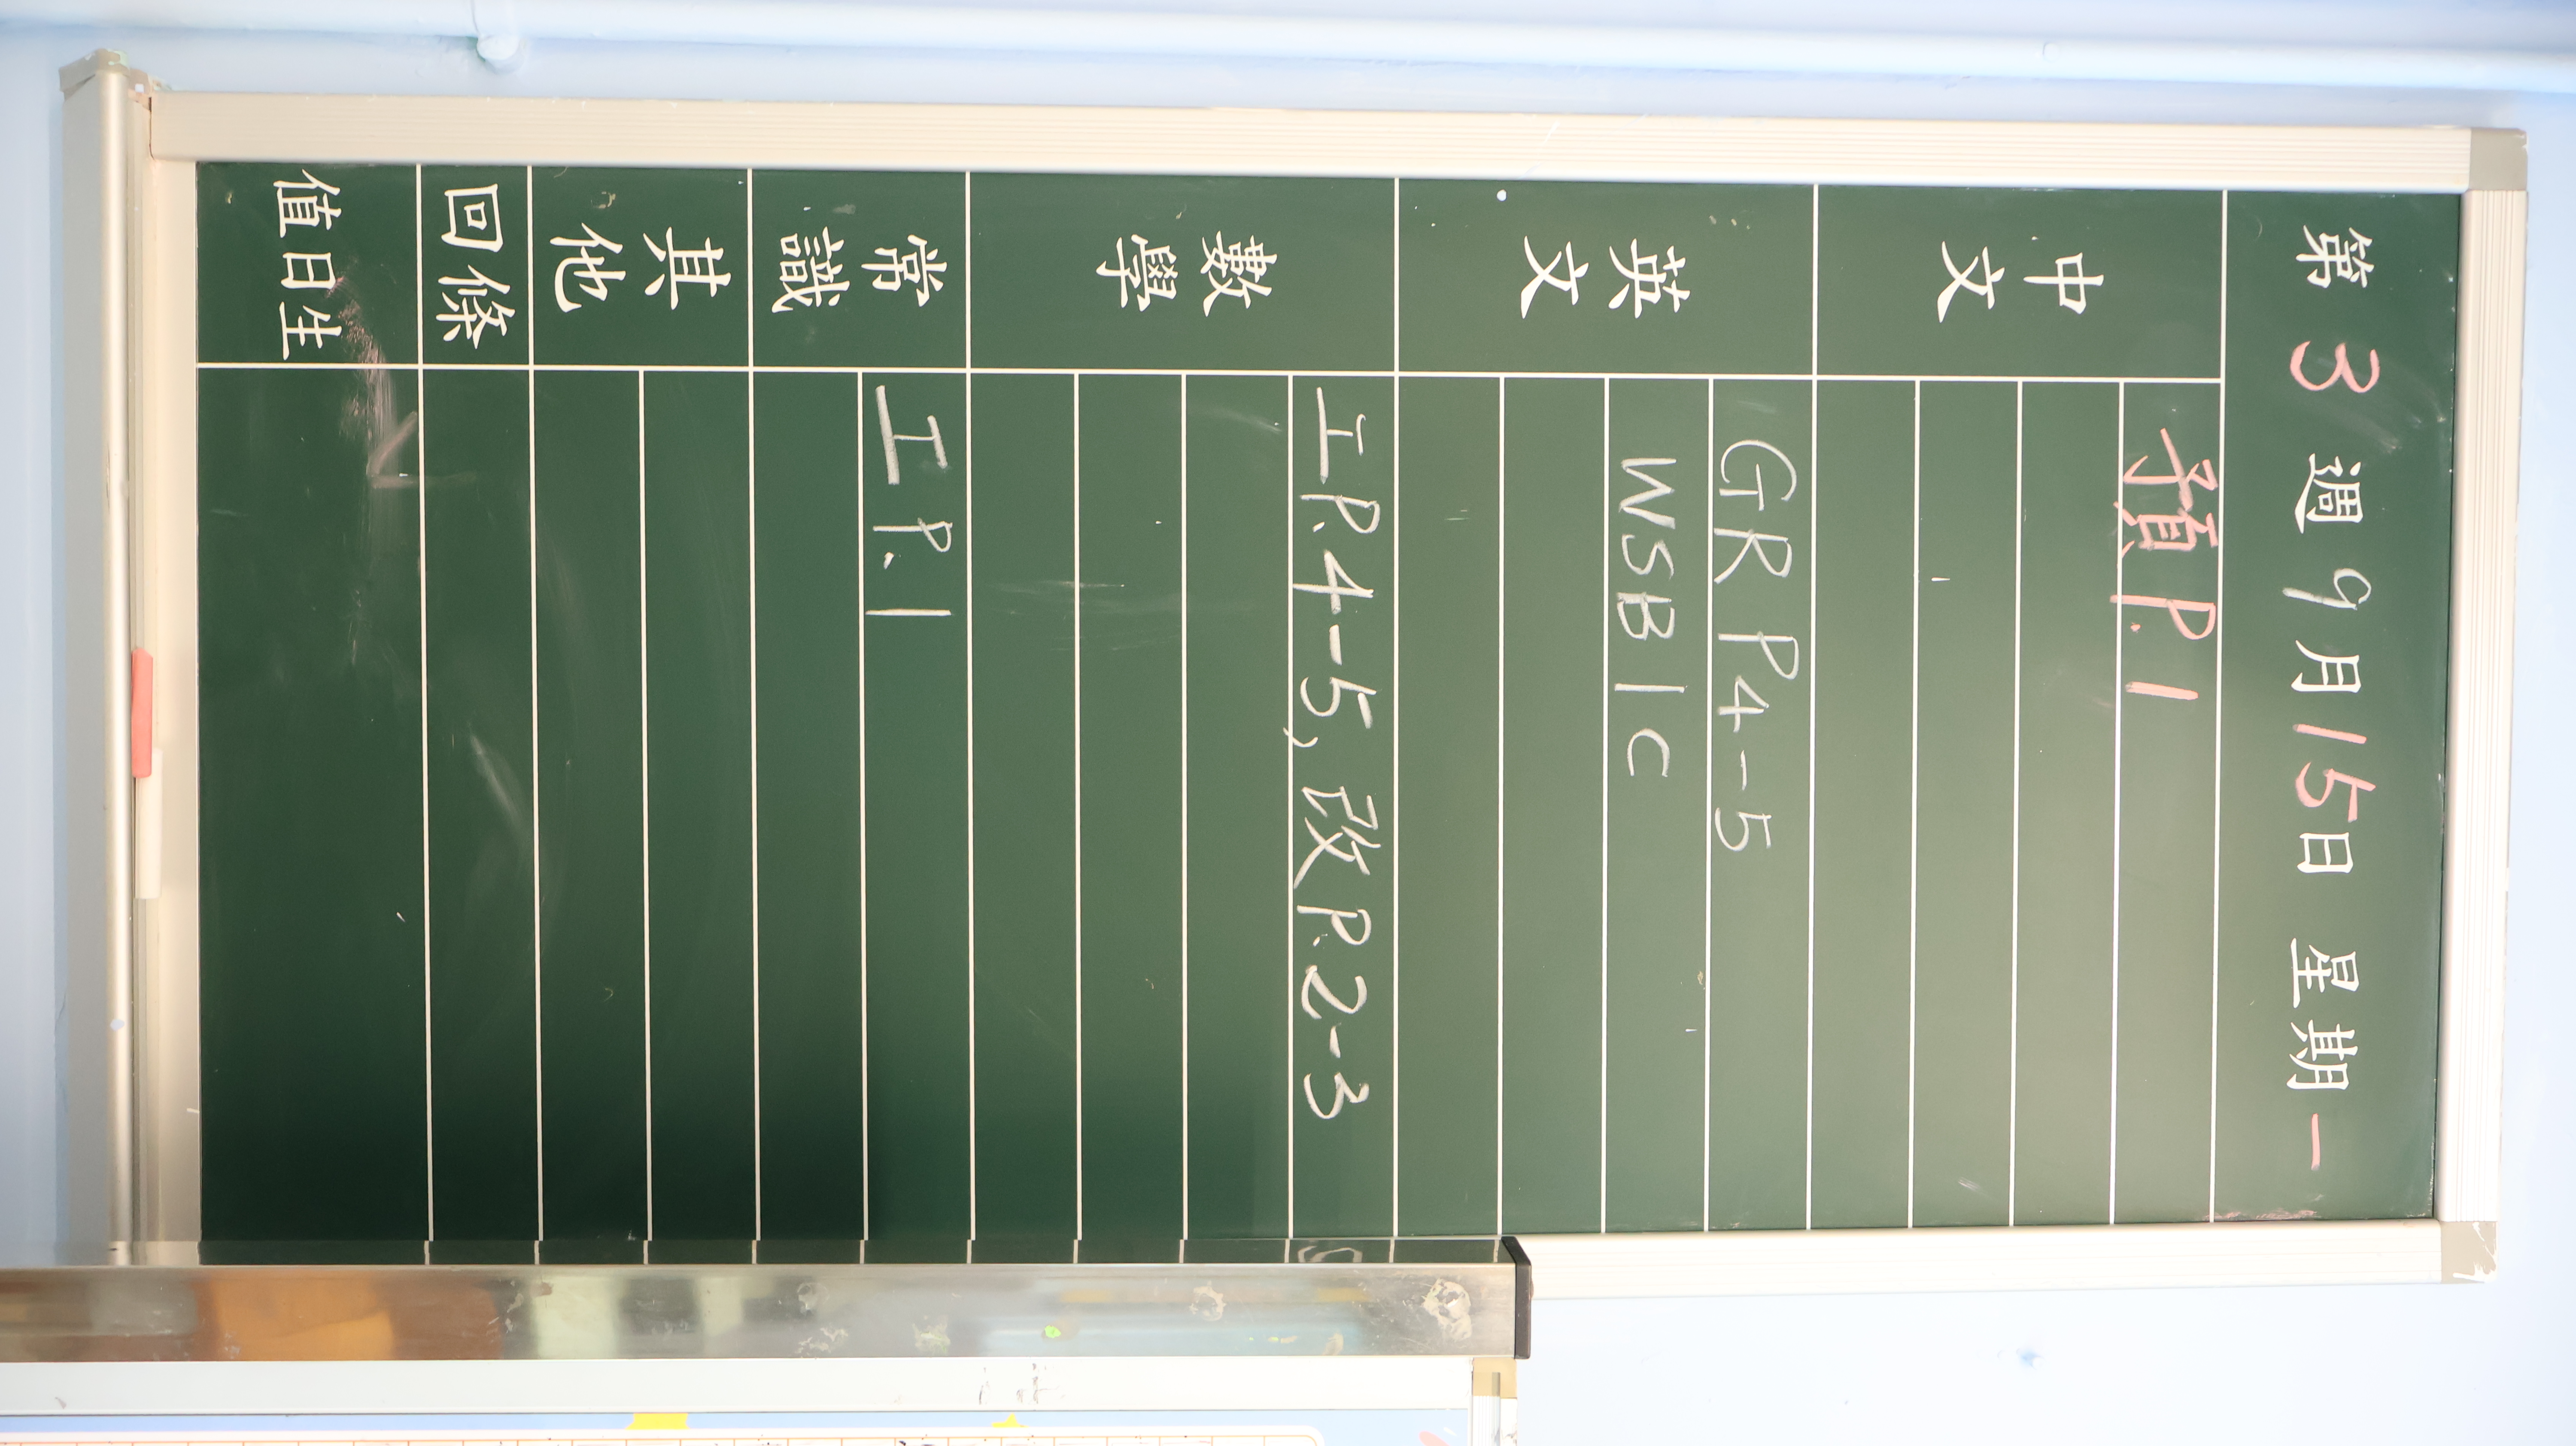 第 3 週 9 月 15 日 星期 一
中文
預 P.1
英文
GR P4-5
WSB 1C
數學
工 P.4-5, 改 P.2-3
常識
工 P.1
其他
回條
值日生